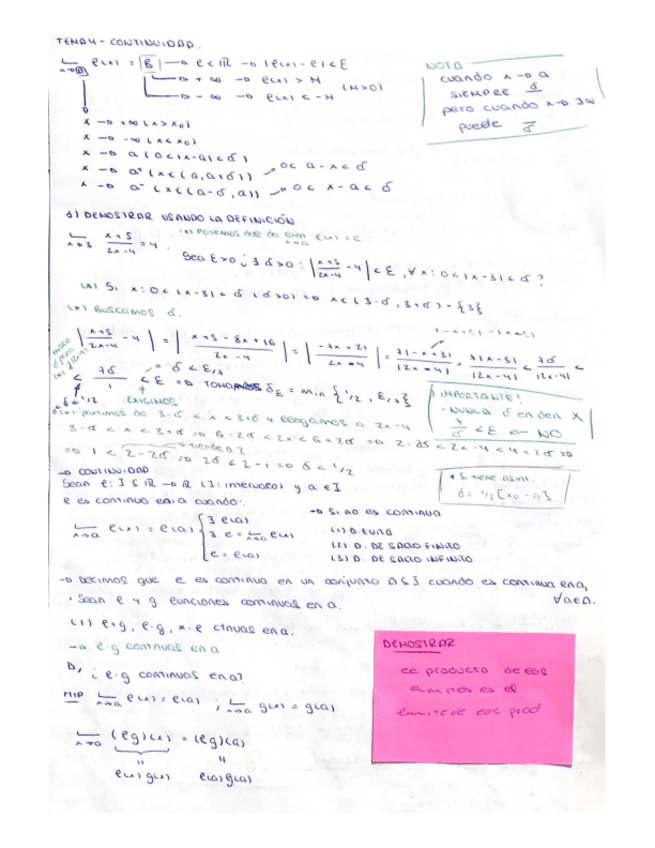 TEMA 4 - CONTINUIDAD.
lim x→a f(x) = B → l ∈ ℝ → |f(x) - l| < ε
→ +∞ → f(x) > M
(M>0)
→ -∞ → f(x) < -M
NOTA
cuando x → a
SIEMPRE δ
pero cuando x → ±∞
puede
x → +∞ (x > x₀)
x → -∞ (x < x₀)
x → a (0<|x-a|<δ)
x → a⁺ (x ∈ (a, a+δ)) → 0 < a-x < δ
x → a⁻ (x ∈ (a-δ, a)) → 0 < x-a < δ
1) DEMOSTRAR USANDO LA DEFINICIÓN
lim x→3 (x+5)/(2x-4) = 4.
Sea ε>0 ¿∃ δ>0 : |(x+5)/(2x-4) - 4| < ε, ∀x : 0<|x-3|<δ?
(*) Si x : 0<|x-3|<δ (δ>0) → x ∈ (3-δ, 3+δ) - {3}
(*) BUSCAMOS δ.
|(x+5)/(2x-4) - 4| = |(x+5-8x+16)/(2x-4)| = |(-7x+21)/(2x-4)| = 7|-x+3|/|2x-4| = 7|x-3|/|2x-4| < 7δ/|2x-4| <
< 7δ/1 < ε ⇒ TOMAMOS δε = min {1/2, ε/7}
δ < ε/7
δ < 1/2
EXIGIMOS
IMPORTANTE!
- NUNCA δ en den X
7/δ < ε ← NO
partimos de 3-δ < x < 3+δ y llegamos a 2x-4
3-δ < x < 3+δ ⇒ 6-2δ < 2x < 6+2δ ⇒ 2-2δ < 2x-4 < 2+2δ ⇒
⇒ 1 < 2-2δ ⇒ 2δ < 2-1 ⇒ δ < 1/2
* Si tiene asínt.
→ CONTINUIDAD
Sean f: I ⊆ ℝ → ℝ (I: intervalo) y a ∈ I
f es continua en a cuando:
lim x→a f(x) = f(a) { ∃ f(a)
∃ l = lim x→a f(x)
l = f(a)
→ Si no es continua
(1) D. EVITA
(2) D. DE SALTO FINITO
(3) D. DE SALTO INFINITO
→ Decimos que f es continua en un conjunto A ⊆ I cuando es continua en a,
∀a∈A.
• Sean f y g funciones continuas en a.
(1) f+g, f·g, α·f ctnuas en a.
→ f·g continuas en a
D/ ¿ f·g continuas en a?
HIP lim x→a f(x) = f(a) ; lim x→a g(x) = g(a)
lim x→a (fg)(x) = (fg)(a)
"
"
f(x)g(x)
f(a)g(a)
DEMOSTRAR
el producto de los
límites es el
límite de los prod.